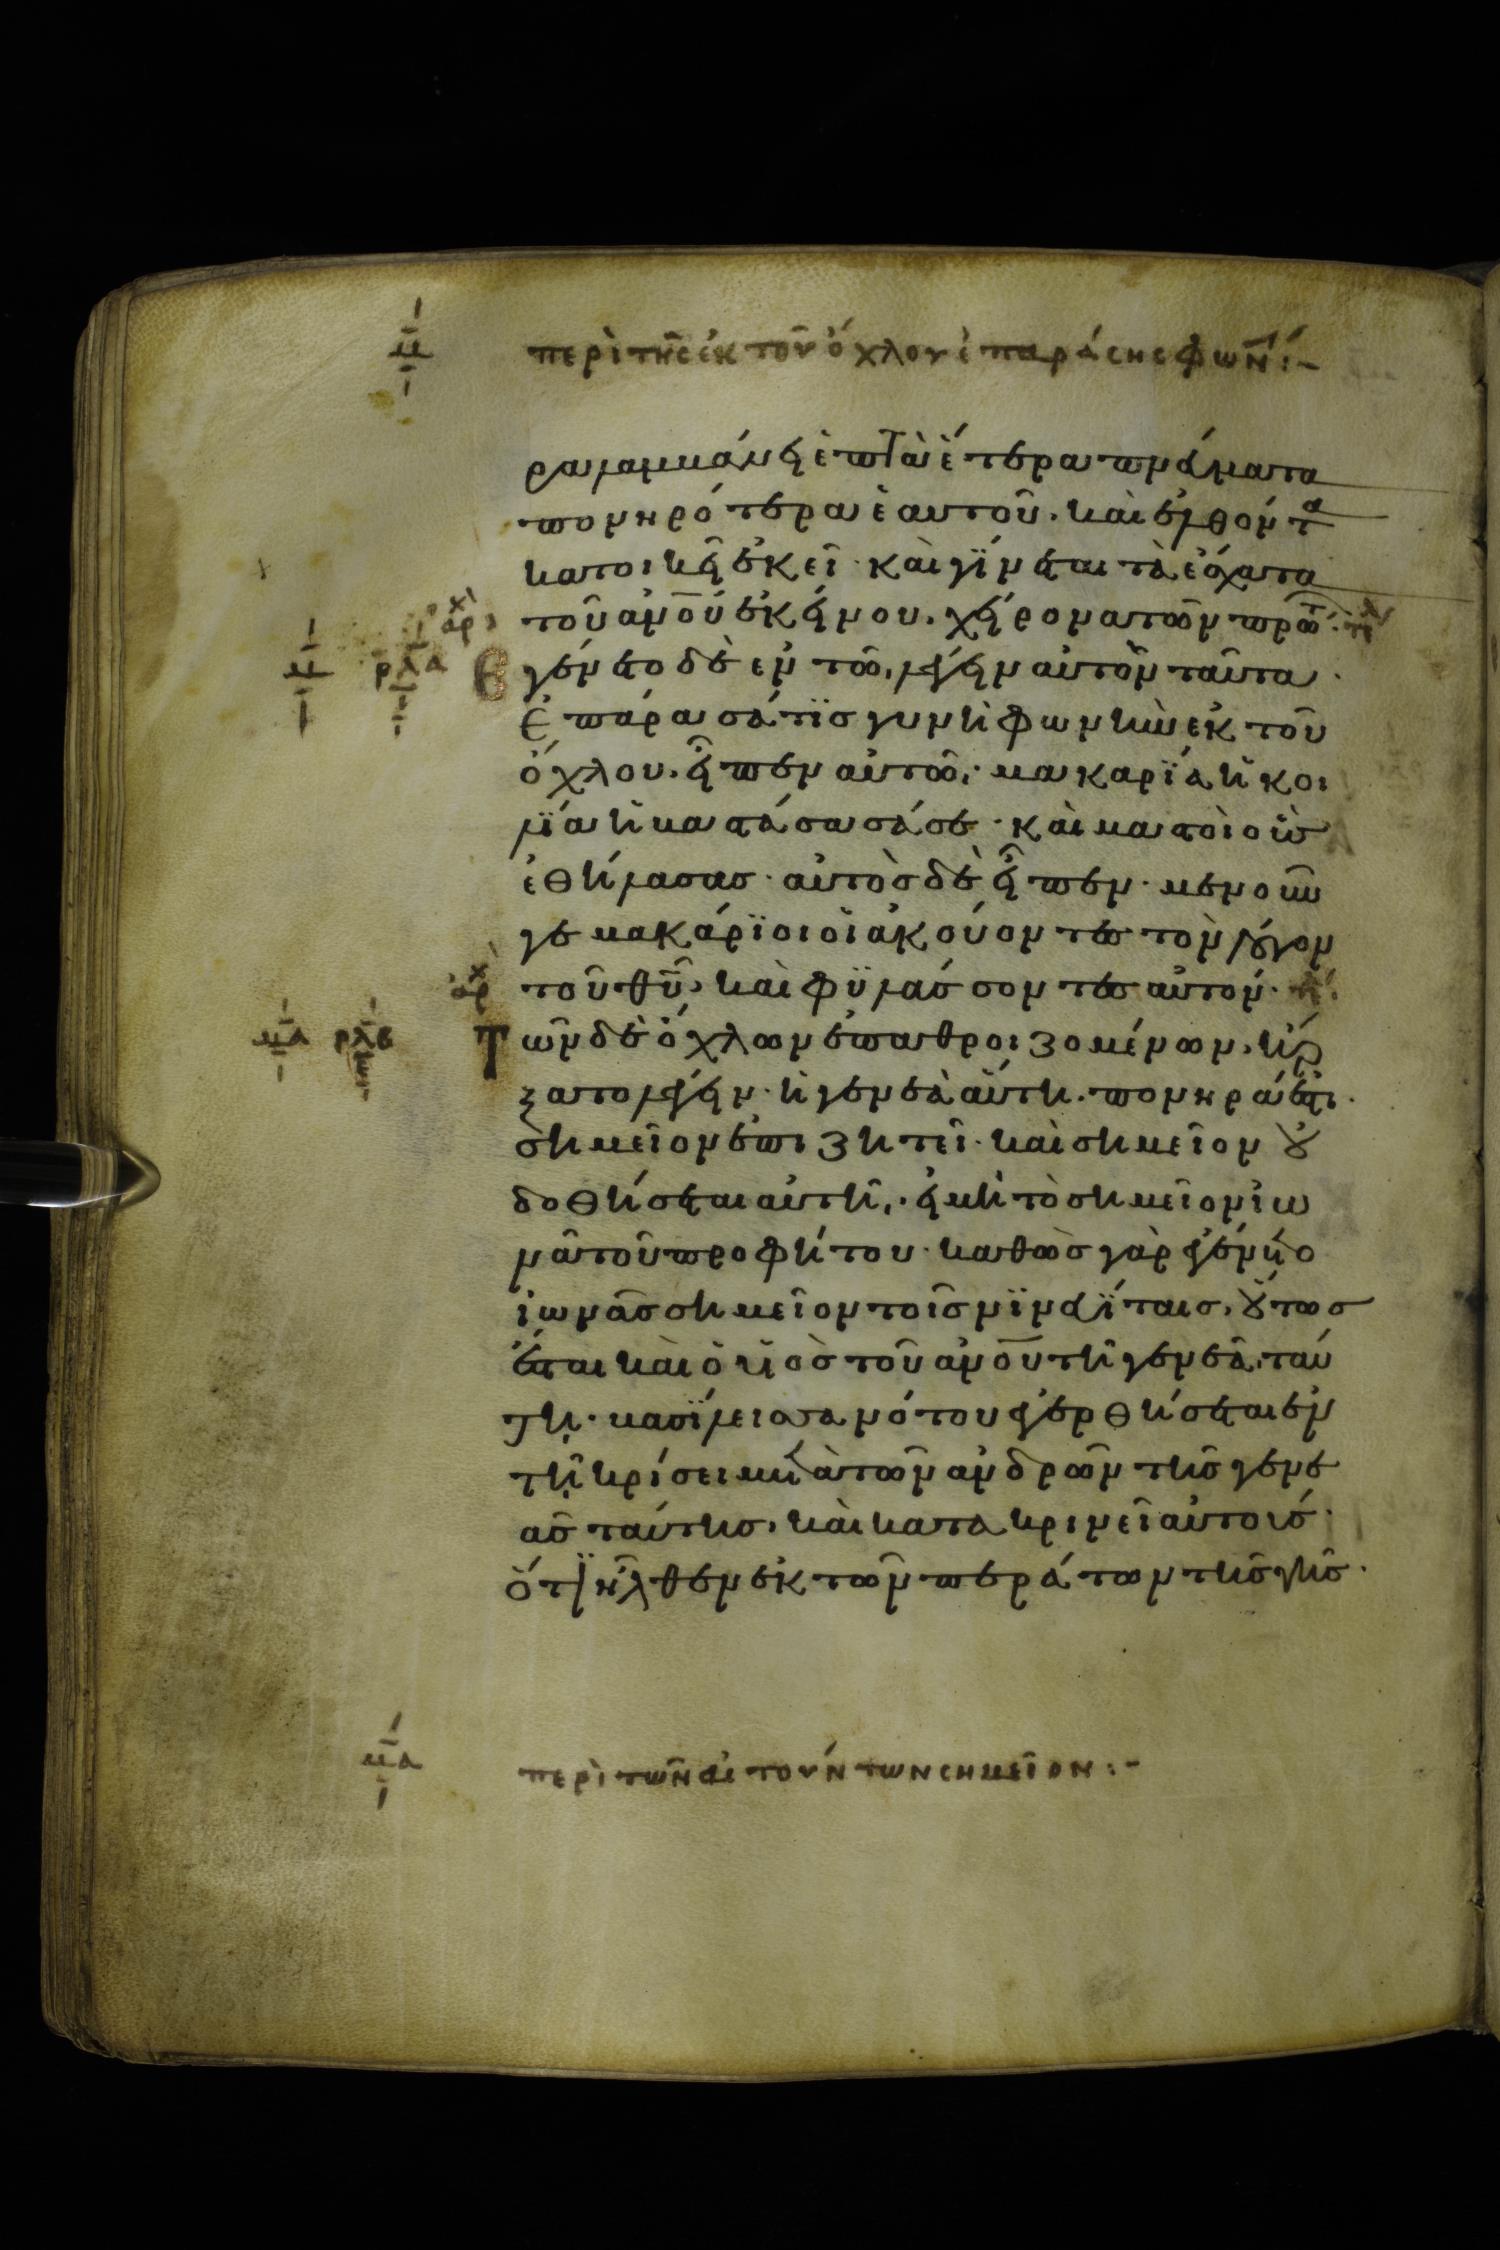 μ περὶ τῆς ἐκ τοῦ ὄχλου ἐπαράσης φωνήν :-
ραλαμβάνει ἑπτὰ ἕτερα πνάματα
πονηρότερα ἑαυτοῦ. καὶ ἐλθόντα
κατοικεῖ ἐκεῖ· καὶ γίνεται τὰ ἔσχατα
ἀρχ τοῦ ἀνου ἐκείνου. χείρονα τῶν πρώτ·
μ ρλα Ἐγένετο δὲ ἐν τῶ, λέγειν αὐτὸν ταῦτα·
ἐπάρασά τϊσ γυνὴ φωνὴν ἐκ τοῦ
ὄχλου. εἶπεν αὐτῶ,· μακαρϊα ἡ κοι
λϊα ἡ βαστάσασά σε· καὶ μαστοὶ οὓσ
ἐθήλασασ· αὐτὸσ δὲ εἶπεν· μενοῦν
γε μακάρϊοι οἱ ἀκούοντεσ τὸν λόγον
ἀρχ τοῦ θυ, καὶ φϋλάσσοντεσ αὐτόν·
μα ρλβ Τῶν δὲ ὄχλων ἐπαθροιζομένων, ἤρ
ξατο λέγειν· ἡ γενεὰ αὕτη. πονηρά ἐστι·
σημεῖον ἐπιζητεῖ· καὶ σημεῖον οὐ
δοθήσεται αὐτῆ,· εἰ μὴ τὸ σημεῖον ἰω
νᾶ τοῦ προφήτου· καθὼσ γὰρ ἐγένετο
ἰωνᾶσ σημεῖον τοῖσ νϊνευϊταισ, οὕτωσ
ἔσται καὶ ὁ ὑιὸσ τοῦ ἀνου τῆ γενεᾶ, ταύ
τη· βασϊλεισσα νότου ἐγερθήσεται ἐν
τῆ κρίσει μετὰ τῶν ἀνδρῶν τῆσ γενε
ᾶσ ταύτησ, καὶ κατακρινεῖ αὐτούσ·
ὅτϊ ἦλθεν ἐκ τῶν περάτων τῆσ γῆσ·
μα περὶ τῶν αἰτούντων σημεῖον :-